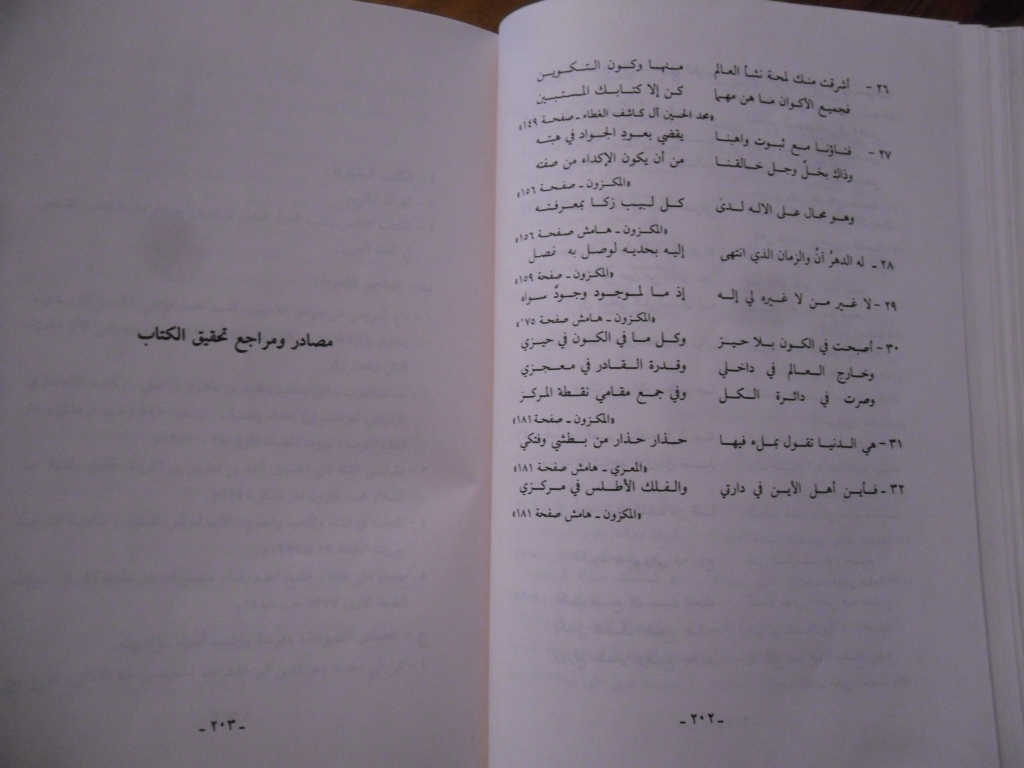 ٢٦ - أشرقت منك لمحة نشأ العالم منها وكون التكوين
فجميع الأكوان ما هن مهما كن إلا كتابك المستبين
«محمد الحسين آل كاشف الغطاء ـ صفحة ١٤٩»
٢٧ - فناؤنا مع ثبوت واهبنا يقضي بعود الجواد في هبته
وذاك بخلٌ وجل خالقنا من أن يكون الإكداء من صفته
«المكزون ـ صفحة ١٥٦»
وهو محال على الاله لدى كل لبيب زكا بمعرفته
«المكزون ـ هامش صفحة ١٥٦»
٢٨ - له الدهرُ آنٌ والزمان الذي انتهى إليه بحديه لوصل به فصل
«المكزون ـ صفحة ١٥٩»
٢٩ - لا غير من لا غيره لي إله إذ ما لموجود وجودٌ سواه
«المكزون ـ هامش صفحة ٠٧٥»
٣٠ - أصبحت في الكون بلا حيز وكل ما في الكون في حيزي
وخارج العالم في داخلي وقدرة القادر في معجزي
وصرت في دائرة الكل وفي جمع مقامي نقطة المركز
«المكزون ـ صفحة ١٨١»
٣١ - هي الدنيا تقول بملء فيها حذار حذار من بطشي وفتكي
«المعري ـ هامش صفحة ١٨١»
٣٢ - فأين أهل الأين في دارتي والفلك الأطلس في مركزي
«المكزون ـ هامش صفحة ١٨١»
ـ ٢٠٢ ـ
مصادر ومراجع تحقيق الكتاب
ـ ٢٠٣ ـ